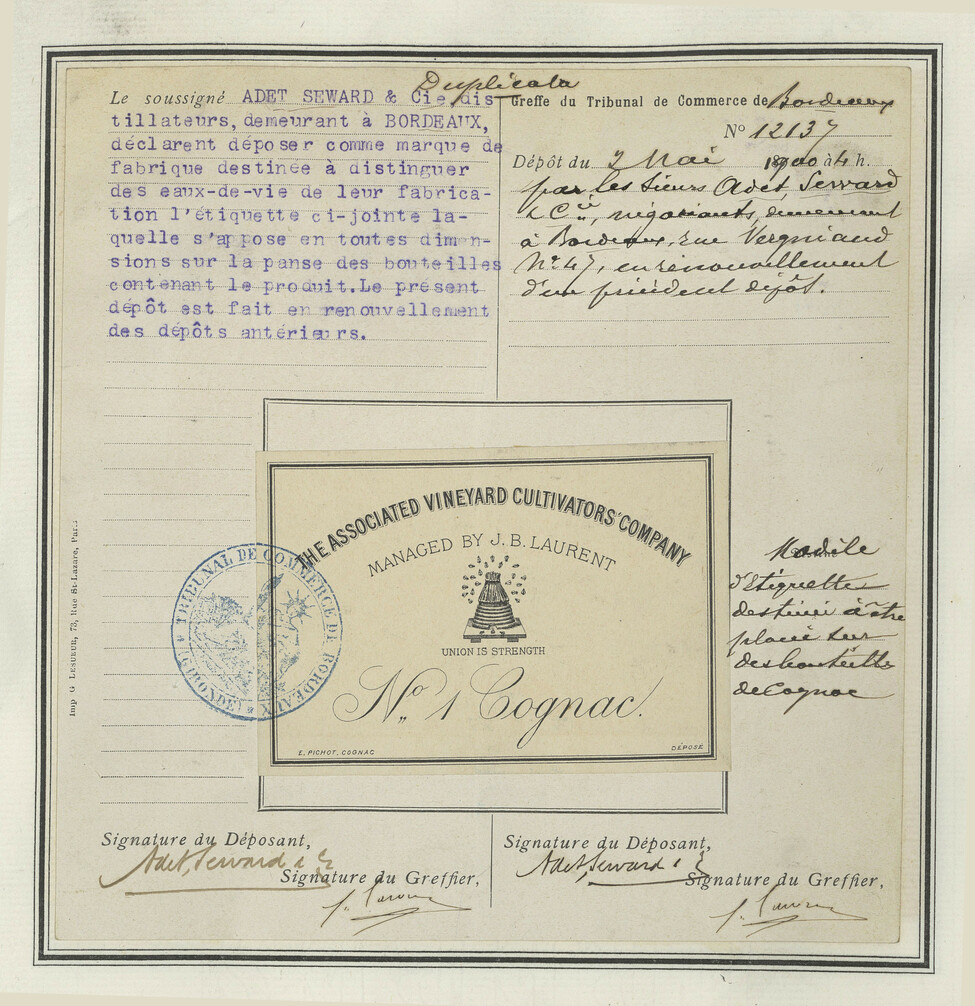 Duplicata
Le soussigné ADET SEWARD & Cie dis-
tillateurs, demeurant à BORDEAUX,
déclarent déposer comme marque de
fabrique destinée à distinguer
des eaux-de-vie de leur fabrica-
tion l'étiquette ci-jointe la-
quelle s'appose en toutes dimen-
sions sur la panse des bouteilles
contenant le produit.Le présent
dépôt est fait en renouvellement
des dépôts antérieurs.
Greffe du Tribunal de Commerce de Bordeaux
No 12137
Dépôt du 2 Mai 1900 à 4 h.
par les sieurs Adet, Seward
& Cie, négociants, demeurant
à Bordeaux, rue Vergniaud
No 47, en renouvellement
d'un précédent dépôt.
THE ASSOCIATED VINEYARD CULTIVATORS' COMPANY
MANAGED BY J. B. LAURENT
UNION IS STRENGTH
No 1 Cognac.
E. PICHOT, COGNAC
DÉPOSÉ
TRIBUNAL DE COMMERCE DE BORDEAUX
(GIRONDE)
Modèle
d'Etiquette
destiné à être
placé sur
des bouteilles
de Cognac
Imp G LESUEUR, 73, Rue St-Lazare, Paris
Signature du Déposant,
Adet, Seward &
Signature du Greffier,
Signature du Déposant,
Adet, Seward &
Signature du Greffier,